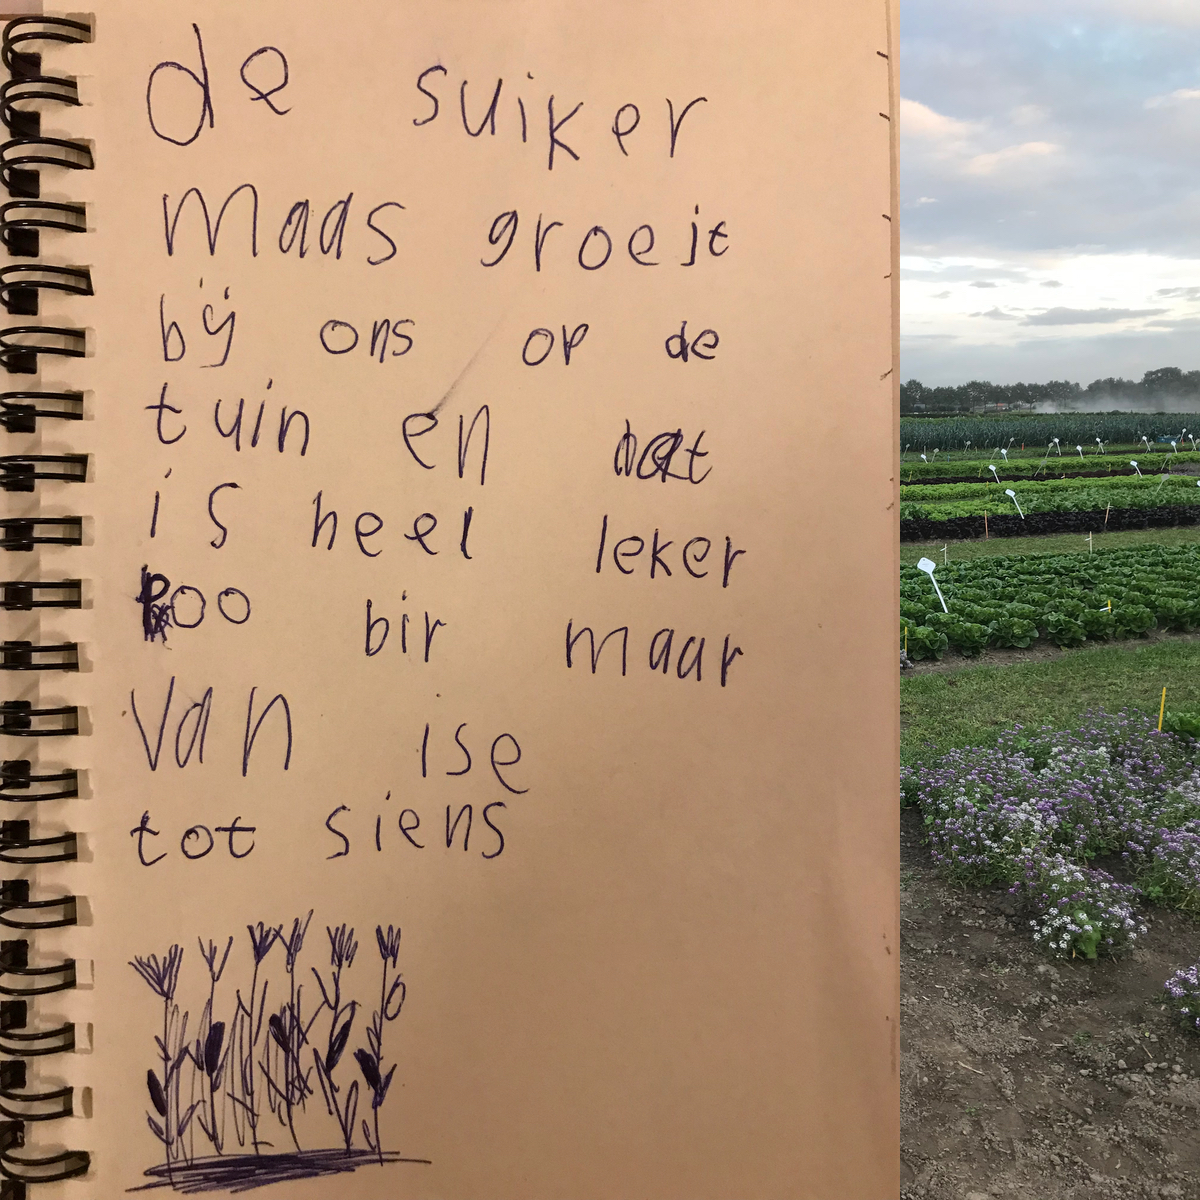 de suiker
maas groeit
bij ons op de
tuin en
is heel leker
bir maar
van ise
tot siens